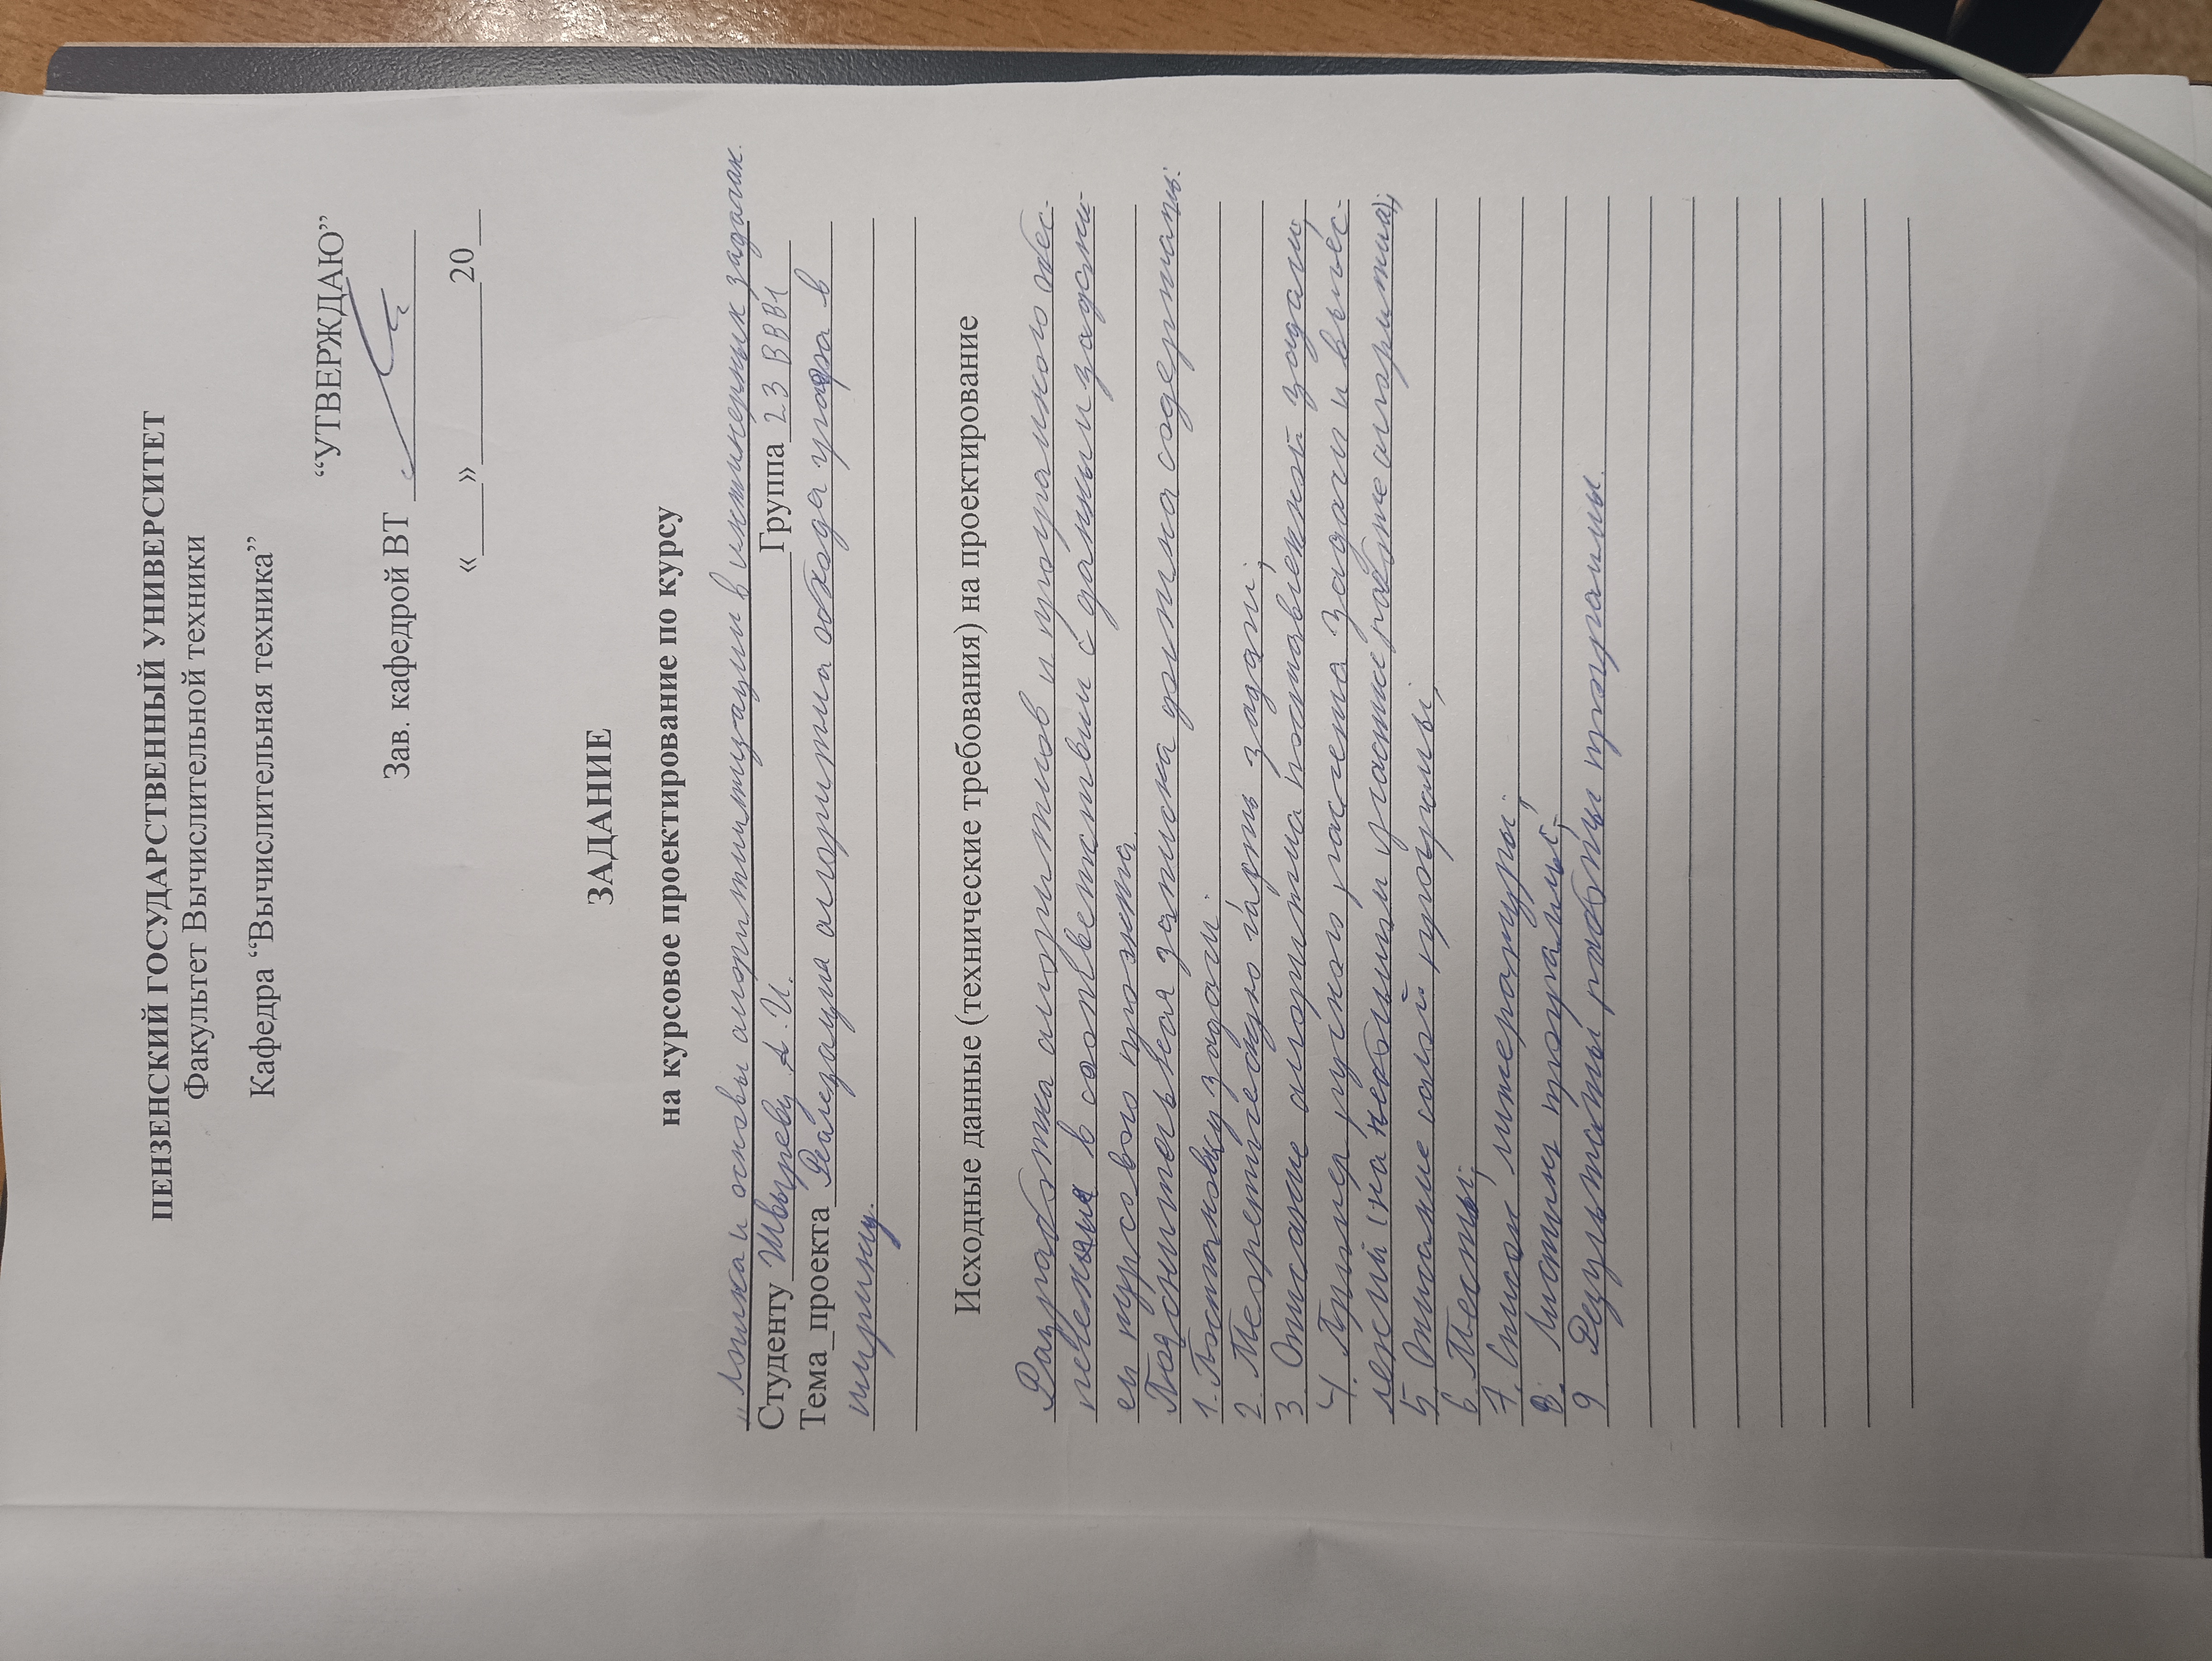 ПЕНЗЕНСКИЙ ГОСУДАРСТВЕННЫЙ УНИВЕРСИТЕТ
Факультет Вычислительной техники
Кафедра “Вычислительная техника”
“УТВЕРЖДАЮ”
Зав. кафедрой ВТ
«___»__________20__
ЗАДАНИЕ
на курсовое проектирование по курсу
"Логика и основы алгоритмизации в инженерных задачах.
Студенту Швыреву А.И. Группа 23ВВВ1
Тема_проекта Реализация алгоритма обхода графа в
ширину.
Исходные данные (технические требования) на проектирование
Разработка алгоритмов и программного обес-
печения в соответствии с данным задани-
ем курсового проекта.
Пояснительная записка должна содержать:
1. Постановку задачи;
2. Теоретическую часть задачи;
3. Описание алгоритма поставленной задачи;
4. Пример ручного расчета задачи и вычис-
лений (на небольшом участке работе алгоритма);
5. Описание самой программы;
6. Тесты;
7. Список литературы;
8. Листинг программы;
9 Результаты работы программы.